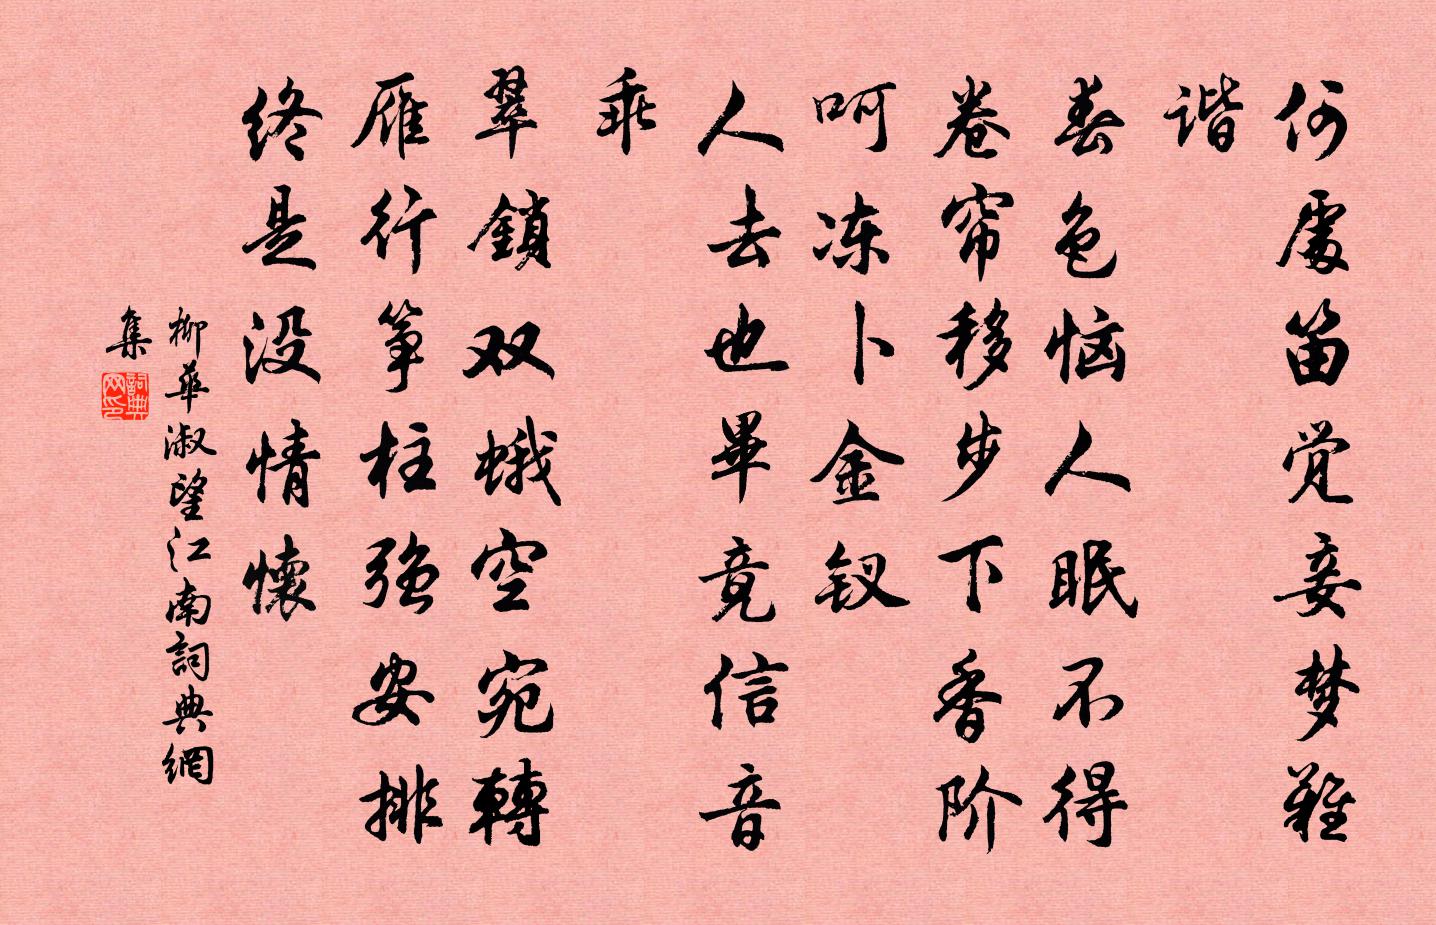 何處笛觉妾梦难
谐
春色恼人眠不得
卷帘移步下香阶
呵冻卜金钗
人去也畢竟信音
乖
翠鎖双蛾空宛轉
雁行筝柱强安排
终是没情懷
柳華淑望江南詞典網
集
詞典
网印